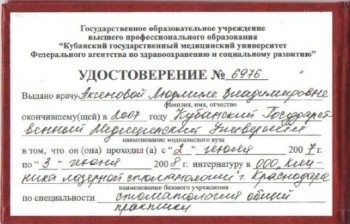 Государственное образовательное учреждение
высшего профессионального образования
"Кубанский государственный медицинский университет
Федерального агентства по здравоохранению и социальному развитию"
УДОСТОВЕРЕНИЕ № 6976
Выдано врачу Аксеновой Людмиле Владимировне
фамилия, имя, отчество
окончившему(щей) в 2007 году Кубанский Государст-
венный Медицинский Университет
наименование медицинского вуза
в том, что он (она) проходил (а) с "2" июля 2007 г.
по "3" июня 2008 г. интернатуру в ООО, Кли-
ника лазерной стоматологии г. Краснодара
наименование базового учреждения
по специальности стоматология общей
практики